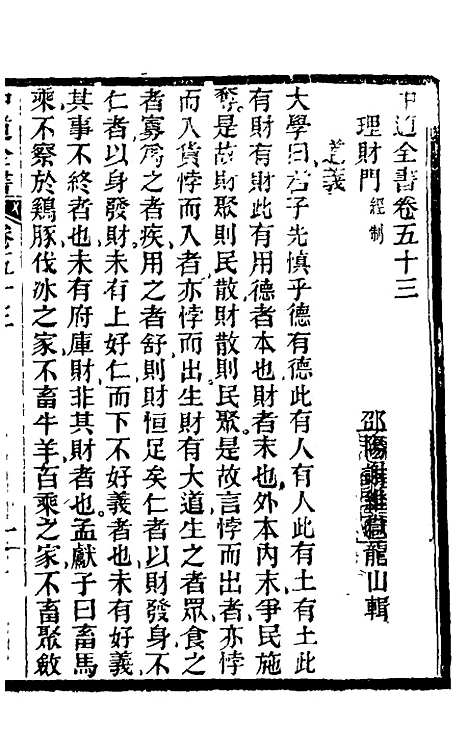 中道全書卷五十三
理財門 經制
邵陽謝維嶽龍山輯
總義
大學曰君子先慎乎德有德此有人有人此有土有土此
有財有財此有用德者本也財者末也外本內末爭民施
奪是故財聚則民散財散則民聚是故言悖而出者亦悖
而入貨悖而入者亦悖而出生財有大道生之者眾食之
者寡為之者疾用之者舒則財恒足矣仁者以財發身不
仁者以身發財未有上好仁而下不好義者也未有好義
其事不終者也未有府庫財非其財者也孟獻子曰畜馬
乘不察於鷄豚伐冰之家不畜牛羊百乘之家不畜聚斂
中道全書 卷五十三